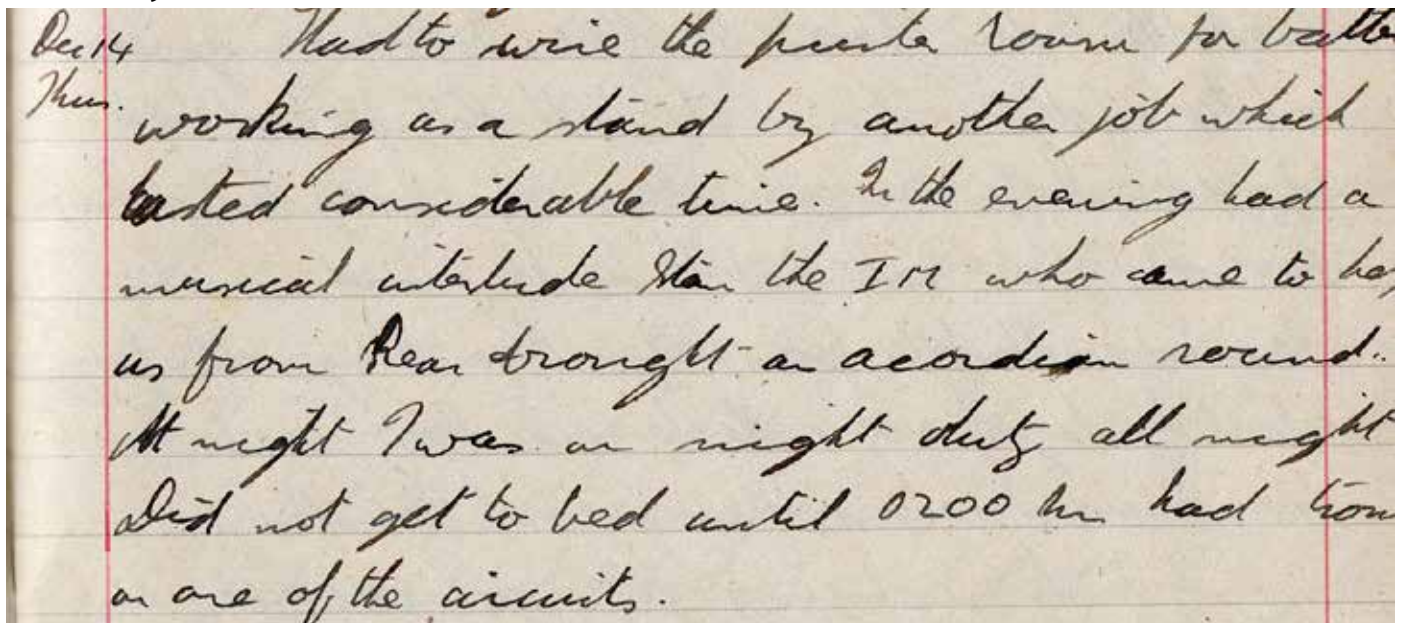 Dec 14 Had to wire the printer room for batte
Thurs. working as a stand by another job which
lasted considerable time. In the evening had a
musical interlude Stan the IM who came to he
us from Rear brought an acordian round.
At night I was on night duty all night
Did not get to bed until 0200 hrs had trou
on one of the circuits.